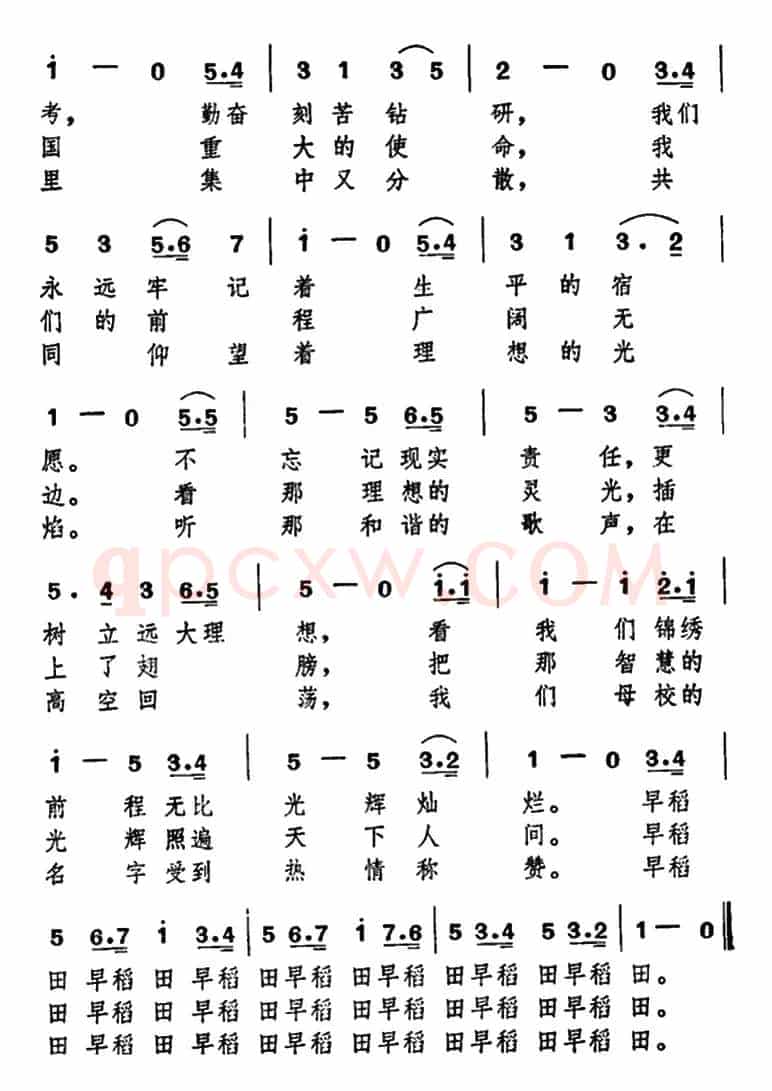 i — 0 5.4 | 3 1 3 5 | 2 — 0 3.4 |
考，勤奋刻苦钻研，我们
国重大的使命，我
里集中又分散，共
5 3 5.6 7 | i — 0 5.4 | 3 1 3. 2 |
永远牢记着生平的宿
们的前程广阔无
同仰望着理想的光
1 — 0 5.5 | 5 — 5 6.5 | 5 — 3 3.4 |
愿。不忘记现实责任，更
边。看那理想的灵光，插
焰。听那和谐的歌声，在
qpcxw.COM
5. 4 3 6.5 | 5 — 0 i.i | i — i 2̇.i |
树立远大理想，看我们锦绣
上了翅膀，把那智慧的
高空回荡，我们母校的
i — 5 3.4 | 5 — 5 3.2 | 1 — 0 3.4 |
前程无比光辉灿烂。早稻
光辉照遍天下人问。早稻
名字受到热情称赞。早稻
5 6.7 i 3.4 | 5 6.7 i 7.6 | 5 3.4 5 3.2 | 1 — 0 ‖
田早稻田早稻田早稻田早稻田早稻田早稻田。
田早稻田早稻田早稻田早稻田早稻田早稻田。
田早稻田早稻田早稻田早稻田早稻田早稻田。